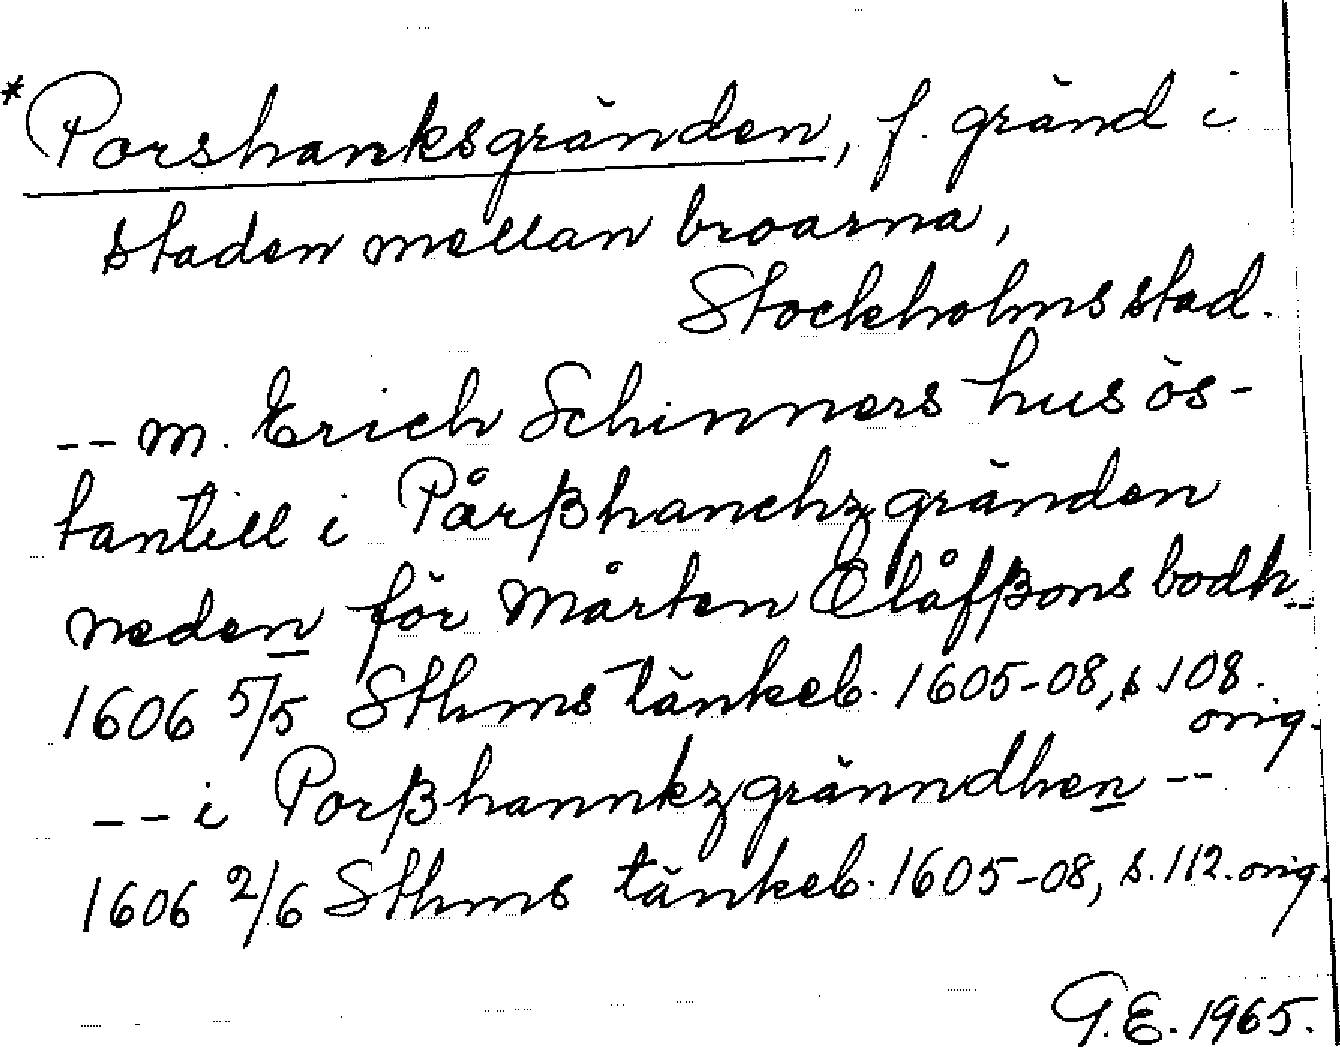 *Porshanksgränden, f. gränd i
staden mellan broarna,
Stockholms stad.
-- m. Erich Schinners hus ös-
tantill i Pårßhanchz gränden
neden för Mårten Olåfßons bodh --
1606 5/5 Sthms tänkeb. 1605-08, s. 108.
orig.
-- i Porßhannkzgränndhen --
1606 2/6 Sthms tänkeb. 1605-08, s. 112. orig.
G.E. 1965.